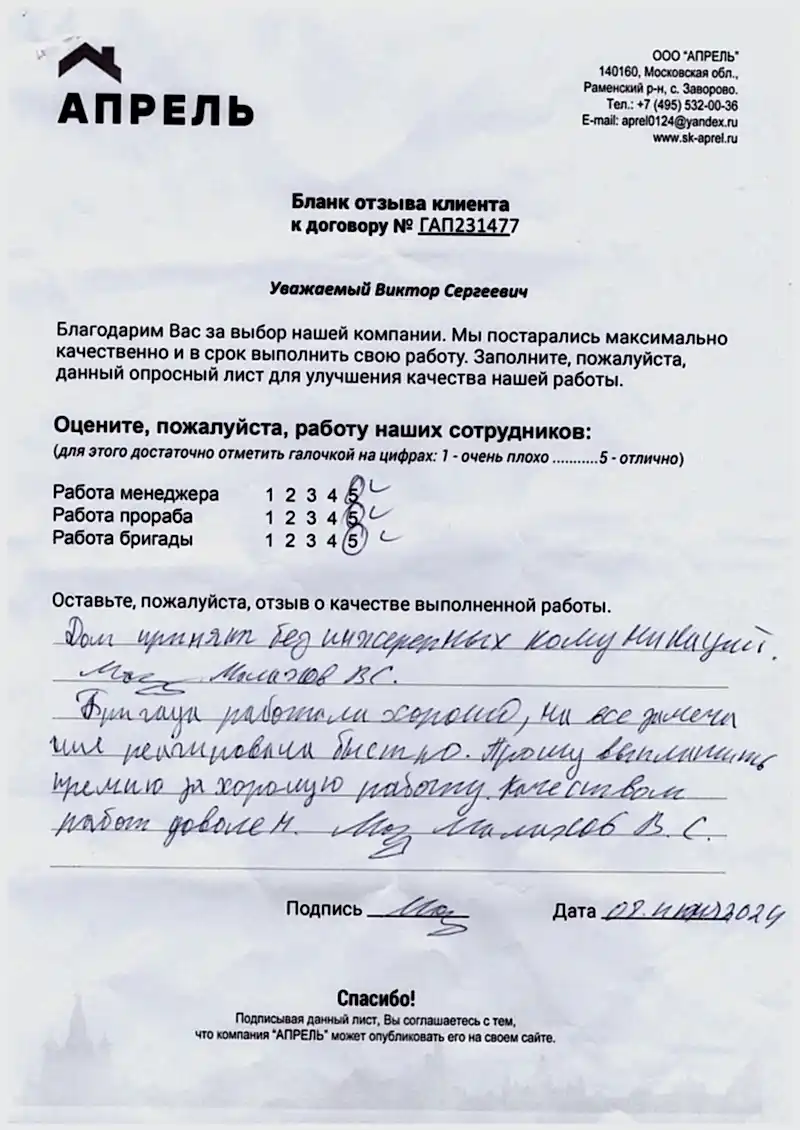 АПРЕЛЬ
ООО "АПРЕЛЬ"
140160, Московская обл.,
Раменский р-н, с. Заворово.
Тел.: +7 (495) 532-00-36
E-mail: aprel0124@yandex.ru
www.sk-aprel.ru
Бланк отзыва клиента
к договору № ГАП231477
Уважаемый Виктор Сергеевич
Благодарим Вас за выбор нашей компании. Мы постарались максимально
качественно и в срок выполнить свою работу. Заполните, пожалуйста,
данный опросный лист для улучшения качества нашей работы.
Оцените, пожалуйста, работу наших сотрудников:
(для этого достаточно отметить галочкой на цифрах: 1 - очень плохо ...........5 - отлично)
Работа менеджера 1 2 3 4 5
Работа прораба 1 2 3 4 5
Работа бригады 1 2 3 4 5
Оставьте, пожалуйста, отзыв о качестве выполненной работы.
Дом принят без инженерных комуникаций.
В.С.
Бригада работала хорошо, на все замеча
ния реагировала быстро. Прошу выплатить
премию за хорошую работу. Качеством
работ доволен. В. С.
Подпись
Дата 2024
Спасибо!
Подписывая данный лист, Вы соглашаетесь с тем,
что компания "АПРЕЛЬ" может опубликовать его на своем сайте.